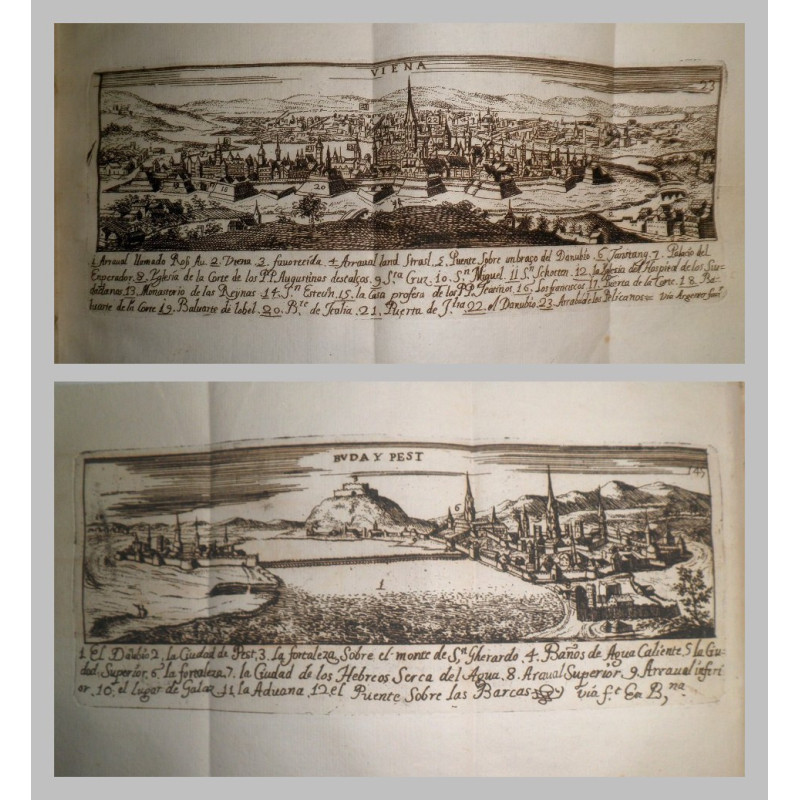 VIENA
23
1. Arraual llamado Roß Au. 2. Viena. 3. favorecida. 4. Arraual land Strasl. 5. Puente Sobre un braço del Danubio. 6. 7. Palacio del
Emperador. 8. Yglesia de la Corte de los PP. Augustinos descalços. 9. Sta. Cruz. 10. Sn. Miguel. 11. Sn. Schotten. 12. la Yglesia del Hospital de los Siu-
dadanos. 13. Monasterio de las Reynas. 14. Sn. 15. la Casa profesa de los PP. 16. Los franciscos. 17. Puerta de la Corte. 18. Ba-
luarte de la Corte. 19. Baluarte de lobel. 20. B.te de Italia. 21. Puerta de 22. el Danubio. 23. de los Pelicanos
BVDA Y PEST
145
1. el Danubio. 2. la Ciudad de Pest. 3. la fortaleza Sobre el monte de Sn. Gherardo. 4. Baños de Agua Caliente. 5. la Ciu-
dad Superior. 6. la fortaleza. 7. la Ciudad de los Hebreos Serca del Agua. 8. Araual Superior. 9. Arraual inferi-
or. 10. el lugar de Galaz. 11. la Aduana. 12. el Puente Sobre las Barcas via f.t En B,na